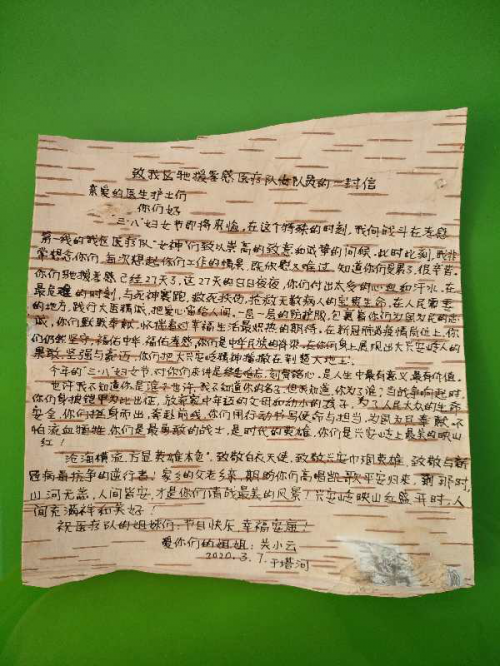 致我区驰援孝感医疗队队员的一封信
亲爱的医生护士们
你们好
"三·八"妇女节即将来临,在这个特殊的时刻,我向战斗在孝感
第一线的我区医疗队"女神"们致以崇高的敬意和诚挚的问候,此时此刻,我非
常想念你们,每次想起你们工作的情景,既欣慰又难过,知道你们受累了,很辛苦,
你们驰援孝感已经27天了,这27天的日日夜夜,你们付出太多的心血和汗水,在
最危难的时刻,与死神赛跑,救死扶伤,抢救无数病人的宝贵生命,在人民需要
的地方,践行大医精诚,把爱心留给人间,一层一层的防护服,包裹着你们为国为民的忠
诚,你们默默奉献,怀揣着对幸福生活最炽热的期待,在新冠肺炎疫情岗位上,你
们仍然坚守,福佑中华,福佑孝感,你们是中华民族的脊梁,在你们身上展现出大兴安岭人的
果敢、坚强与豪迈,你们把大兴安岭精神播撒在荆楚大地上。
今年的"三·八"妇女节,对你们来讲是终生难忘、刻骨铭心,是人生中最有意义最有价值。
也许我不知道你是谁,也许我不知道你的名字,但我知道你为了谁;当战争响起时,
你们身披铠甲为此出征,放弃家中年迈的父母和幼小的孩子,为了人民大众的生命
安全,你们挺身而出,奔赴前线,你们用行动书写使命与担当,为国立足奉献,不
怕流血牺牲,你们是最勇敢的战士,是时代的英雄,你们是兴安岭上最美的映山
红!
沧海横流,方显英雄本色",致敬白衣天使,致敬兴安巾帼英雄,致敬与新
冠病毒抗争的逆行者!家乡的父老乡亲,期盼你们高唱凯歌平安归来,到那时,
山河无恙,人间皆安,才是你们情战最美的风景!兴安岭映山红盛开时,人
间充满祥和美好!
祝医疗队的姐妹们:节日快乐,幸福安康!
爱你们的姐姐:关小云
2020.3.7.于塔河